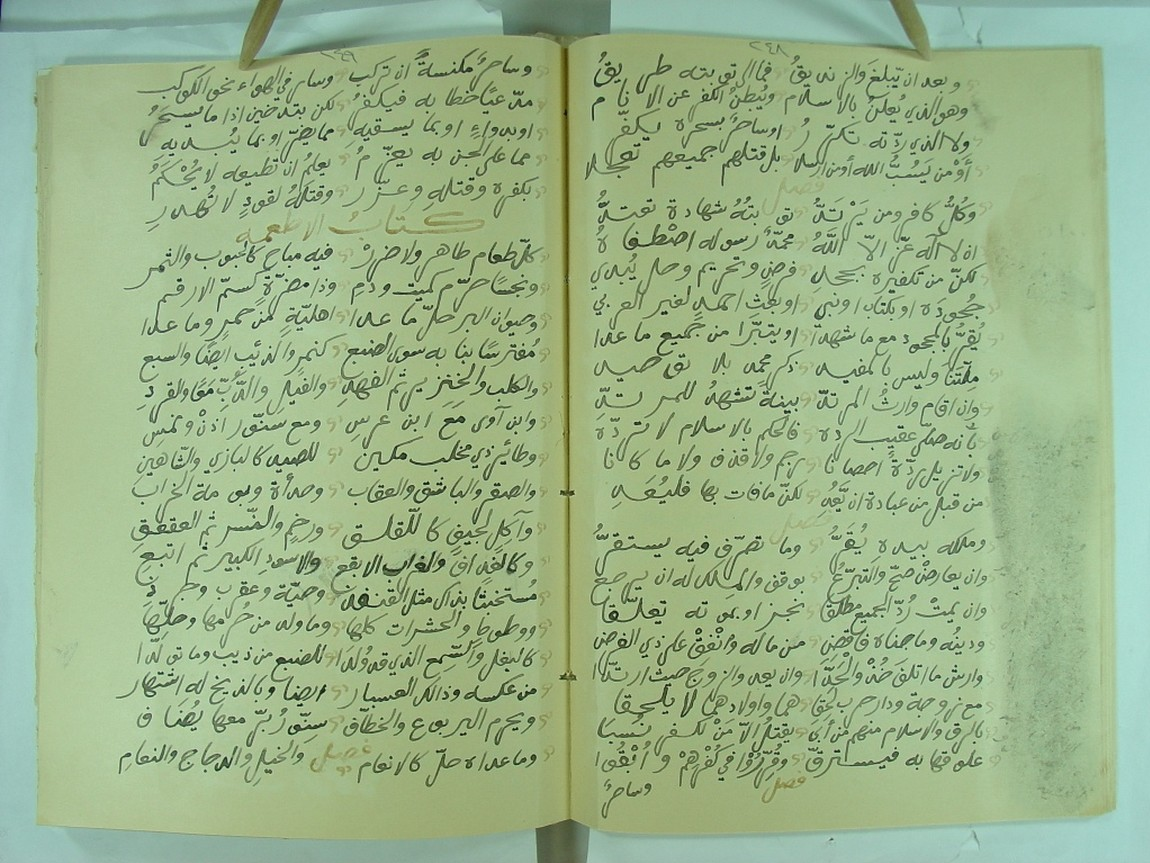 ٢٤٨
وبعد ان يبلغ والزنديقُ فما الى توبته طريقُ
وهو الذي يُعلنُ بالاسلام ويُبطنُ الكفر عن الانام
ولا الذي ردّته تكرّرُ اوساحرٌ بسحره يكفّر
أَوْ من يَسُبُّ الله أو من ارسلا بل قتلهم جميعهم تعجلا
فصل
وكلُّ كافر ومن يَرْتدُّ توبتهُ شهادة تعتدُّ
ان لا اله عزّ الاّ اللهُ محمدٌ رسوله اصْطفاهُ
لكنّ من تكفيره بجحد فرضٍ وتحريم وحل يُبدي
جُحودَه او بكتاب او نبي او بعثِ احمدٍ لغير العربي
يُقِرُّ بالمجحود مع ما شهدا او يتبرّا من جميع ما عدا
ملّتنا وليس بالمفيد ذكر محمد بلا توحيد
وان اقام وارثُ المرتدّ بينةً تشهدُ للمرتدِّ
بأنه صلّى عقيب الرده فالحكم بالاسلام لا تردّه
ولا تزيل ردّةٌ احصانا رجم ولا قذف ولا ما كانا
من قبل من عبادة ان يَعُد لكنّ ما فات بها فليُعَدِ
فصل
وملكه بيده يُقَرُّ وما تصرّف فيه يستقرُّ
وان يعارض صحّ والتبرّعُ يوقف والمسلك له ان يرجع
وان يمتْ رُدّ الجميع مطلقا نجز او بموته تعلّقا
ودينُه وما جناه فاقضِ من ماله وانْفِقْ على ذي الفرض
وارش ما اتلفَ خُذْ والْحَدَّا وان يعد والزوج حيث ارتدّا
مع زوجة ودار حرب لحقا هما واولادهما لا يلحقا
بالرق والاسلام منهم من أبي يقتلُ الاّ مَنْ لكفر نُسبا
علوقها به فيسترقّ وقُرِّرُوا في كُفْرِهمْ وابْقُوا
فصل
وساحرٌ
٢٤٩
وساحرٌ مكنسةً ان تركب وسار في الهواء نحو الكوكب
مدّعيًا خطابه فيكفُرُ لكن بتدخين اذا ما يسحرُ
او بدواءٍ او بما يسقيهِ مما يضرّ او بما يُبديهِ
مما على الجن به يعزّمُ يعلمُ ان تطيعه لا يُحْكَمُ
بكفره وقتله وعزّر وقتلهُ لقودٍ لا تُهدر
كتابُ الاطعمه
كلّ طعام طاهر ولا ضررْ فيه مباح كالحبوب والثمر
ونجسًا حرّم كميت ودم وذا مضرّةٍ كسمّ الارقم
وحيوان البر حلّ ما عدا اهليّةٍ من حمرٍ وما عدا
مُفترسًا بنابه سوى الضبع كنمر والذئب ايضًا والسبع
والكلب والخنزير ثم الفهد والفيل والدُّبِّ معًا والقردِ
وابن آوى مَعَ ابن عرسِ ومع سنّور اذنْ ونمسِ
وطائرٍ ذي مخلب مكين للصيد كالبازي والشاهين
والصقر والباشق والعقاب وحدأة وبومة الخراب
وآكلٍ لجيفٍ كاللقلق ورخمٍ والنّسر ثم العقعقِ
وكالغدافِ والغراب الابقع والاسود الكبير ثم اتبع
مُستخبثًا بذاك مثل القنفذ وحيّة وعقرب وجرذ
ووطواط والحشرات كلها وما ولد من حُرمها وحلّها
كالبغل والسّمع الذي قد وُلدا للضبع من ذيب وما تولّدا
من عكسه وذالك العسبار ايضا وبالذيخ له اشتهار
ويحرم اليربوع والخطّاف سنّورُ برّ معها يُضاف
وما عداه حلّ كالانعام فصل والخيلِ والدجاج والنعام